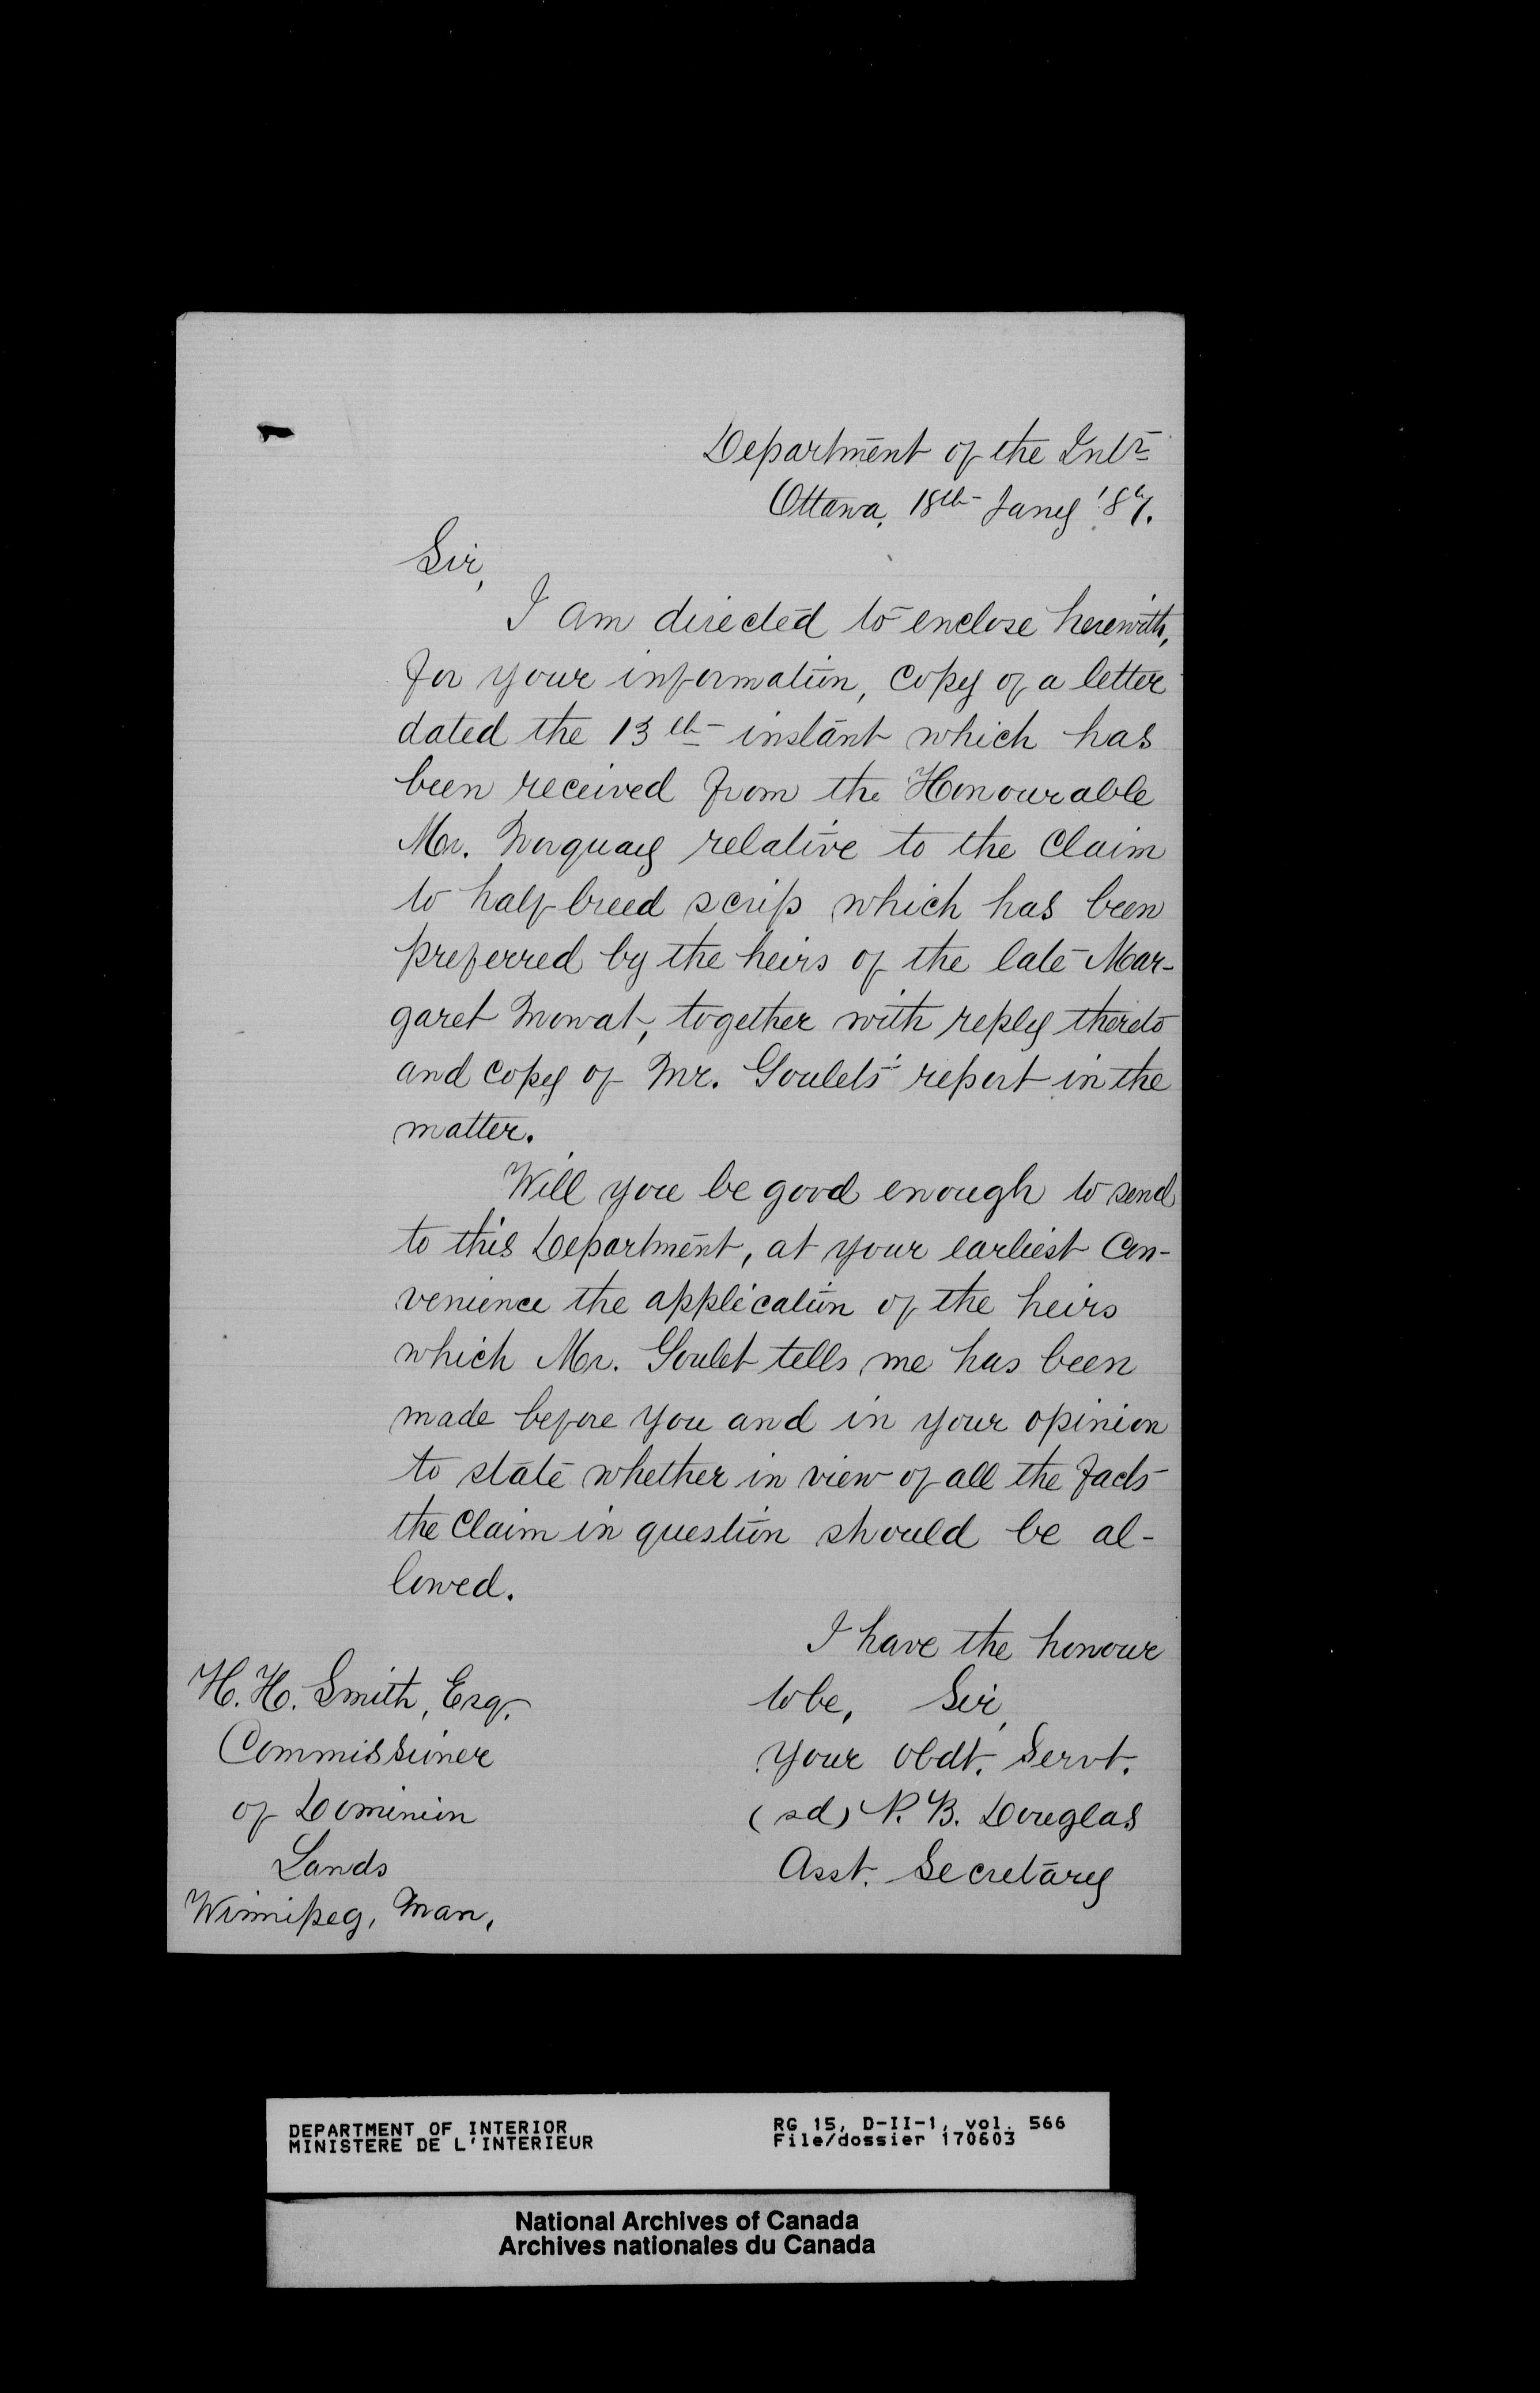 Department of the Intr
Ottawa, 18th Jany '87.
Sir,
I am directed to enclose herewith,
for your information, copy of a letter
dated the 13th instant which has
been received from the Honourable
Mr. Norquay relative to the Claim
to half breed scrip which has been
preferred by the heirs of the late Mar-
garet Mowat, together with reply thereto
and copy of Mr. Goulet's report in the
matter.
Will you be good enough to send
to this Department, at your earliest con-
venience the application of the heirs
which Mr. Goulet tells me has been
made before you and in your opinion
to state whether in view of all the facts
the Claim in question should be al-
lowed.
I have the honour
to be, Sir,
Your obdt. Servt.
(sd) P. B. Douglas
Asst. Secretary
H. H. Smith, Esq.
Commissioner
of Dominion
Lands
Winnipeg, Man.
DEPARTMENT OF INTERIOR
MINISTERE DE L'INTERIEUR
RG 15, D-II-1, vol. 566
File/dossier 170603
National Archives of Canada
Archives nationales du Canada